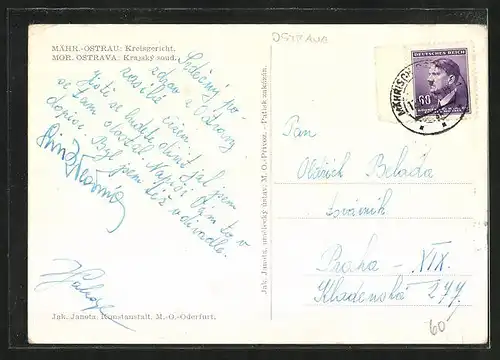 MÄHR.-OSTRAU: Kreisgericht.
MOR. OSTRAVA: Krajský soud.
Srdečný po
zdrav z Ostravy
zasílá
Jistě se budete divit jak jsem
se tam dostal. Napíši Vám to v
dopise. Byl jsem též v divadle.
Jak. Janota, Kunstanstalt, M.-O.-Oderfurt.
Jak. Janota, umělecký ústav, M. O.-Přívoz. - Patisk zakázán.
OSTRAVA
DEUTSCHES REICH
60
MÄHRISCH
Pan
Oldřich Belada
továrník
Praha - XIX.
Kladenská 277.
60